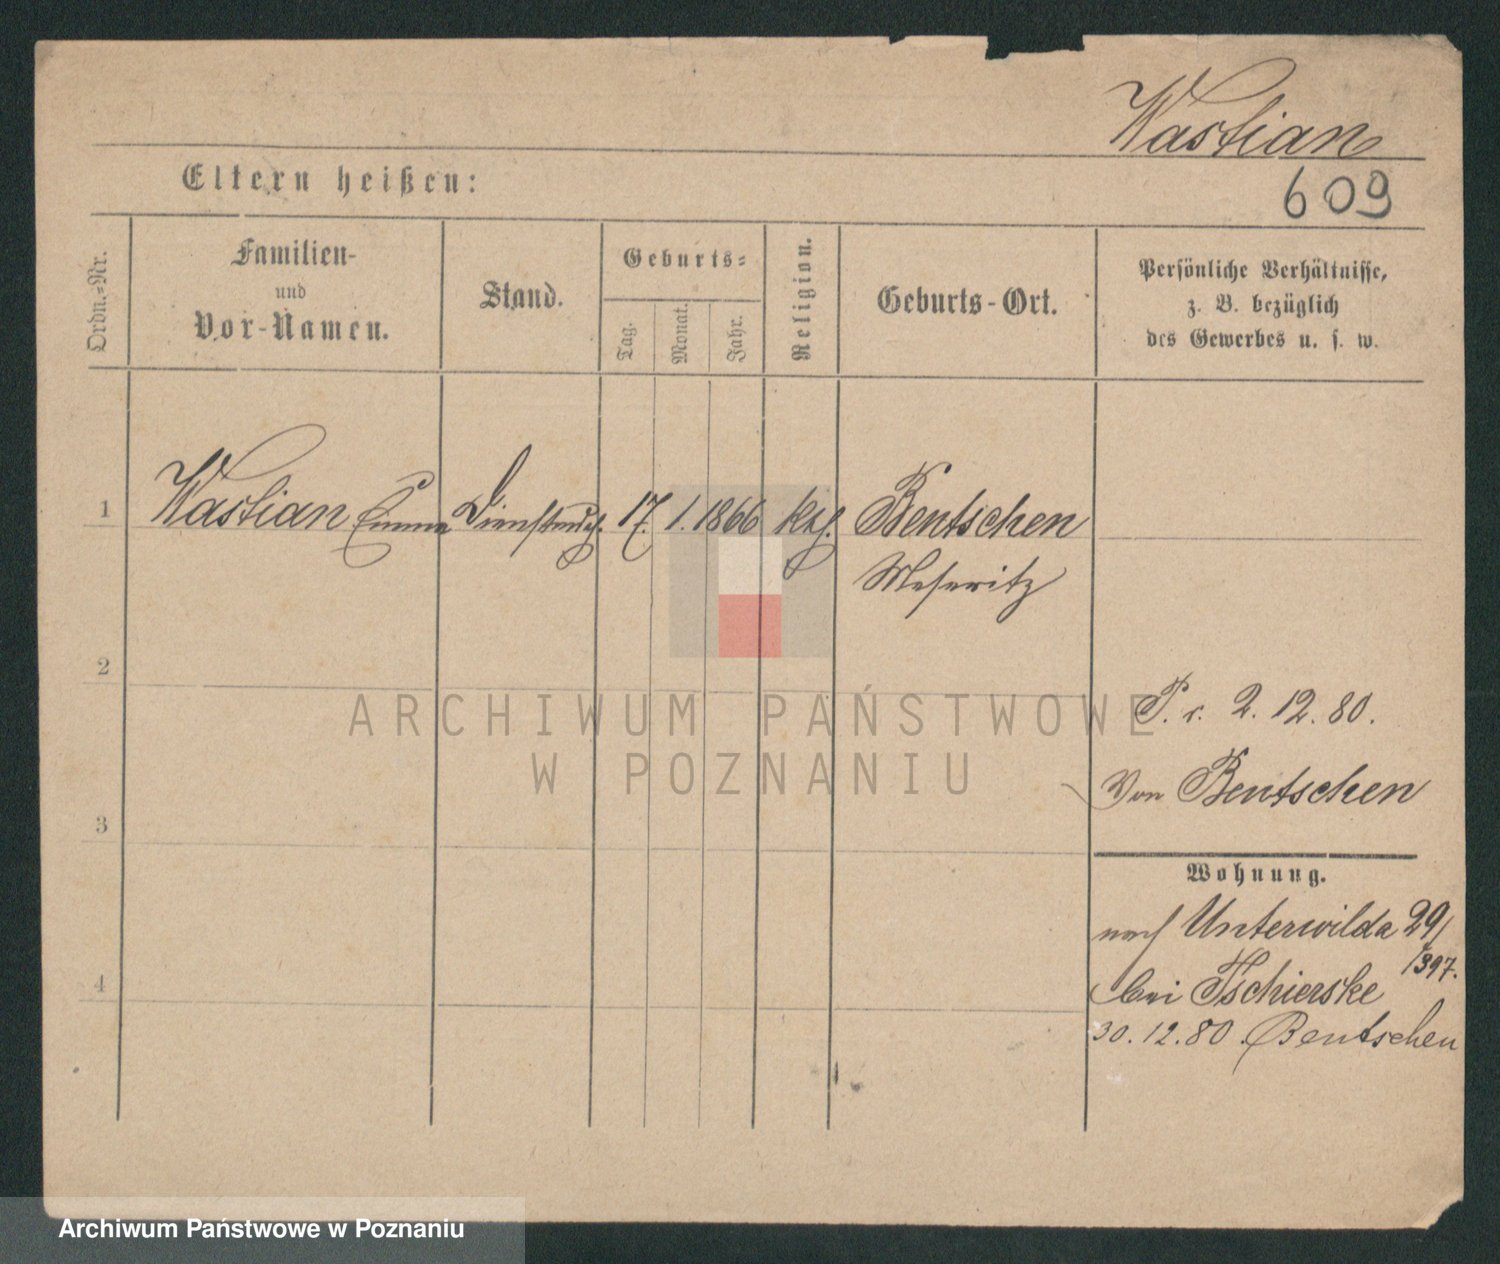 Wastian
609
Eltern heißen:
Ordn.-Nr.
Familien-
und
Vor-Namen.
Stand.
Geburts-
Tag.
Monat.
Jahr.
Religion.
Geburts-Ort.
Persönliche Verhältnisse,
z. B. bezüglich
des Gewerbes u. s. w.
1 Wastian Emma Dienstmdch. 17. 1. 1866 kth. Bentschen
Meseritz
2
P. r. 2. 12. 80.
ARCHIWUM PAŃSTWOWE
W POZNANIU
Von Bentschen
3
Wohnung.
nach Unterwilda 29/
/397.
bei Tschierske
4
30. 12. 80. Bentschen
Archiwum Państwowe w Poznaniu